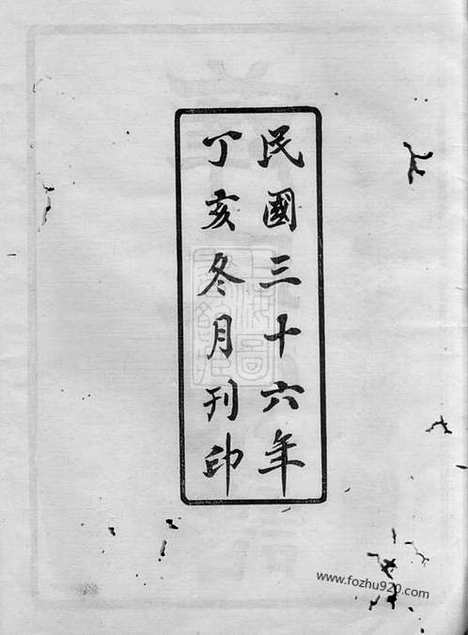 民國三十六年
丁亥冬月刊印
www.fozhu920.com